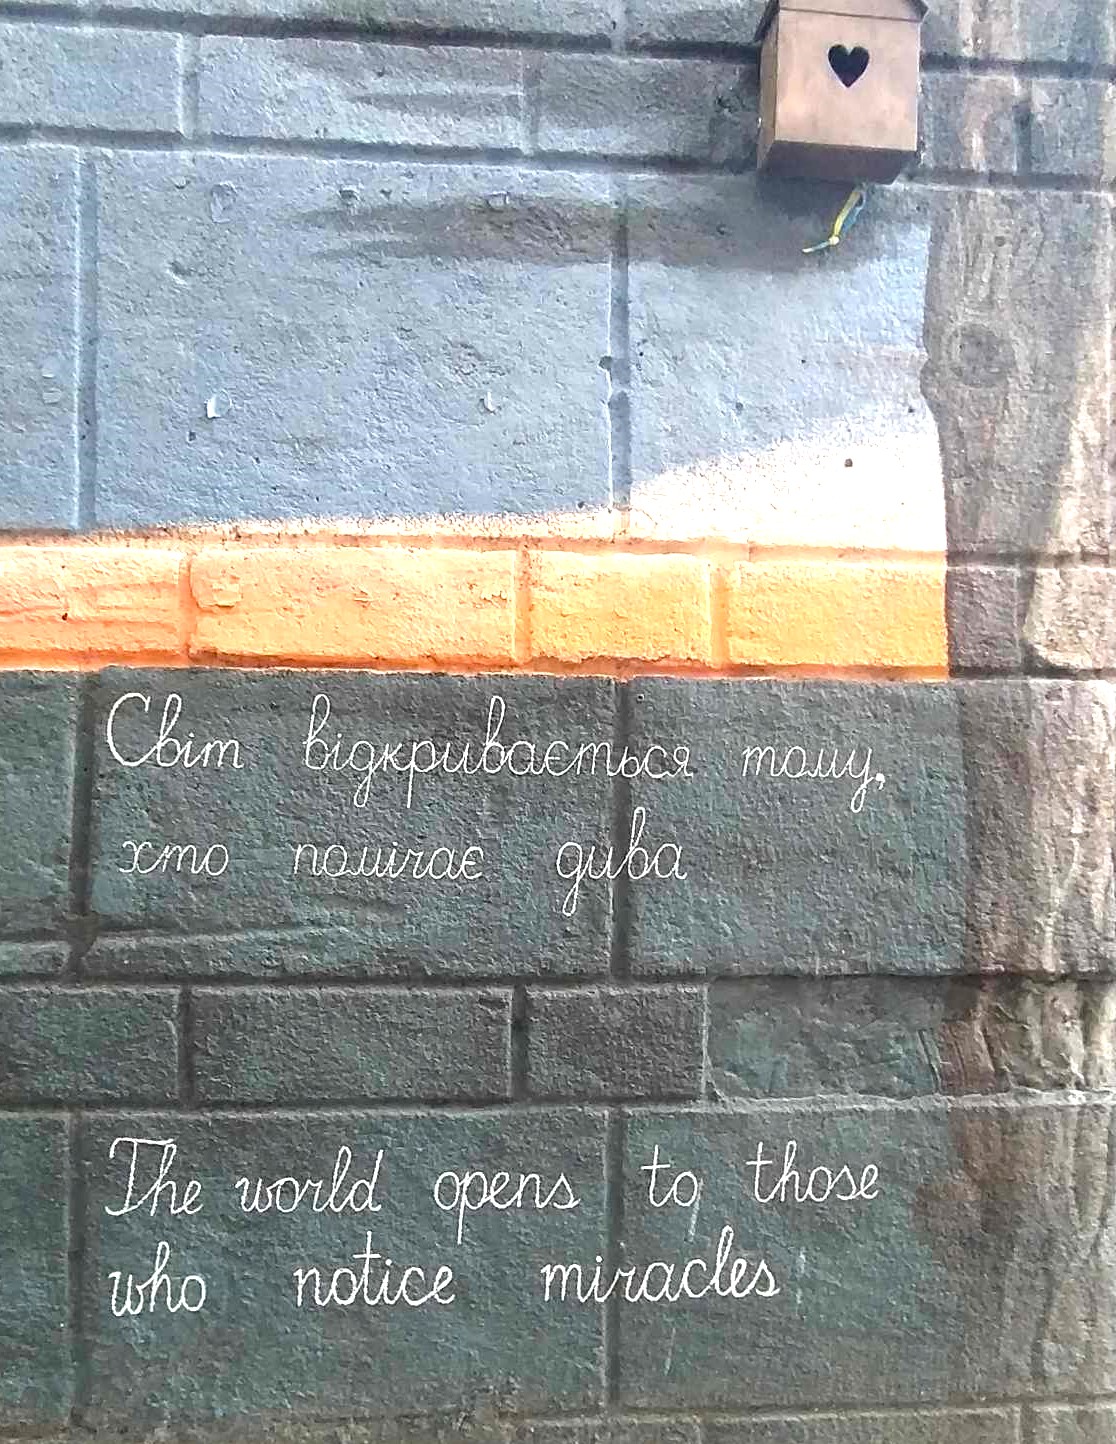 Світ відкривається тому,
хто помічає дива
The world opens to those
who notice miracles